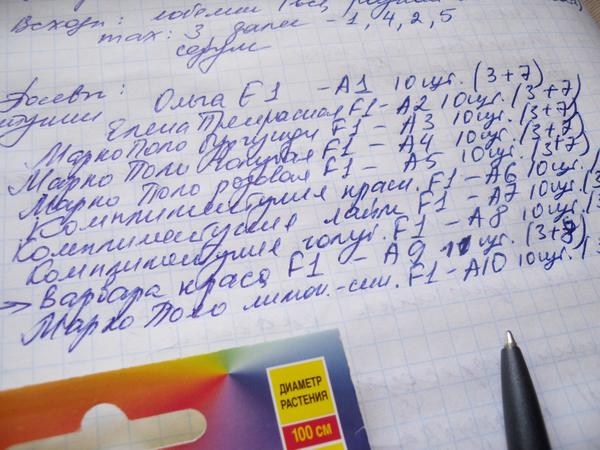 Всходы:
max: 3, далее - 1, 4, 2, 5
Посевы:
Ольга F1 - A1 10 шт. (3+7)
Елена Прекрасная F1 - A2 10 шт. (3+7)
Марко Поло F1 - A3 10 шт. (3+7)
Марко Поло голубая F1 - A4 10 шт. (3+7)
Марко Поло розовая F1 - A5 10 шт. (3+7)
Комплиментуния красн. F1 - A6 10 шт. (3
Комплиментуния F1 - A7 10 шт. (3
Комплиментуния голуб. F1 - A8 10 шт. (3
→ Варвара краса F1 - A9 11 шт. (3+8)
Марко Поло лимон.-син. F1 - A10 10 шт. (3
ДИАМЕТР
РАСТЕНИЯ
100 СМ